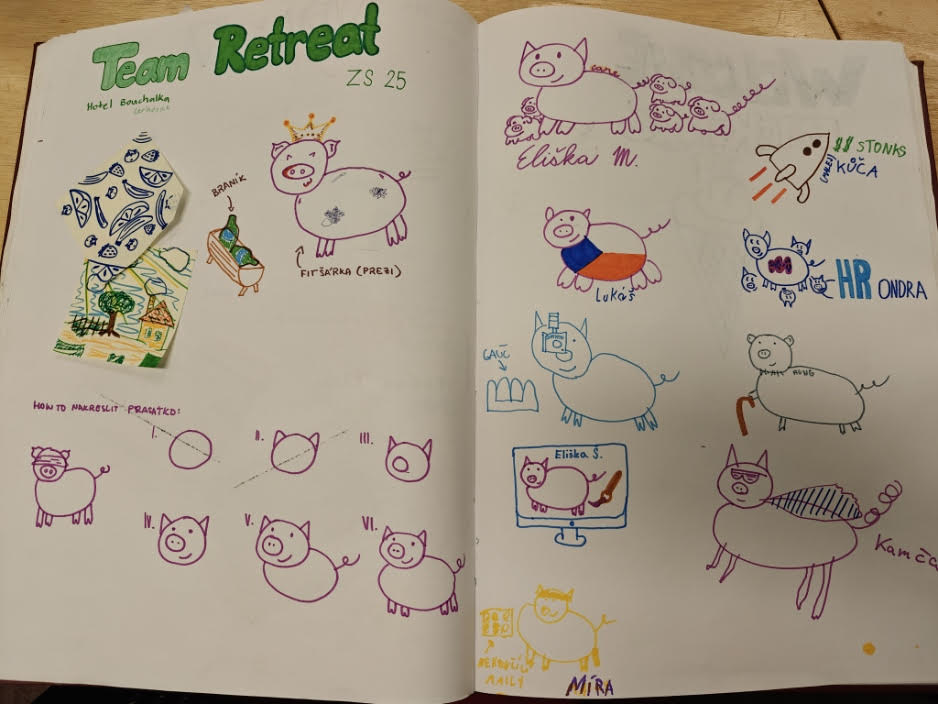 Team Retreat
ZS 25
Hotel Bouchalka
BRANÍK
FIT ŠÁRKA (PREZI)
HOW TO NAKRESLIT PRASÁTKO:
I.
II.
III.
IV.
V.
VI.
Eliška M.
$$ STONKS
KŮČA
Lukáš
HR ONDRA
GAUČ
Eliška Š.
Kamča
MAILY
MÍRA